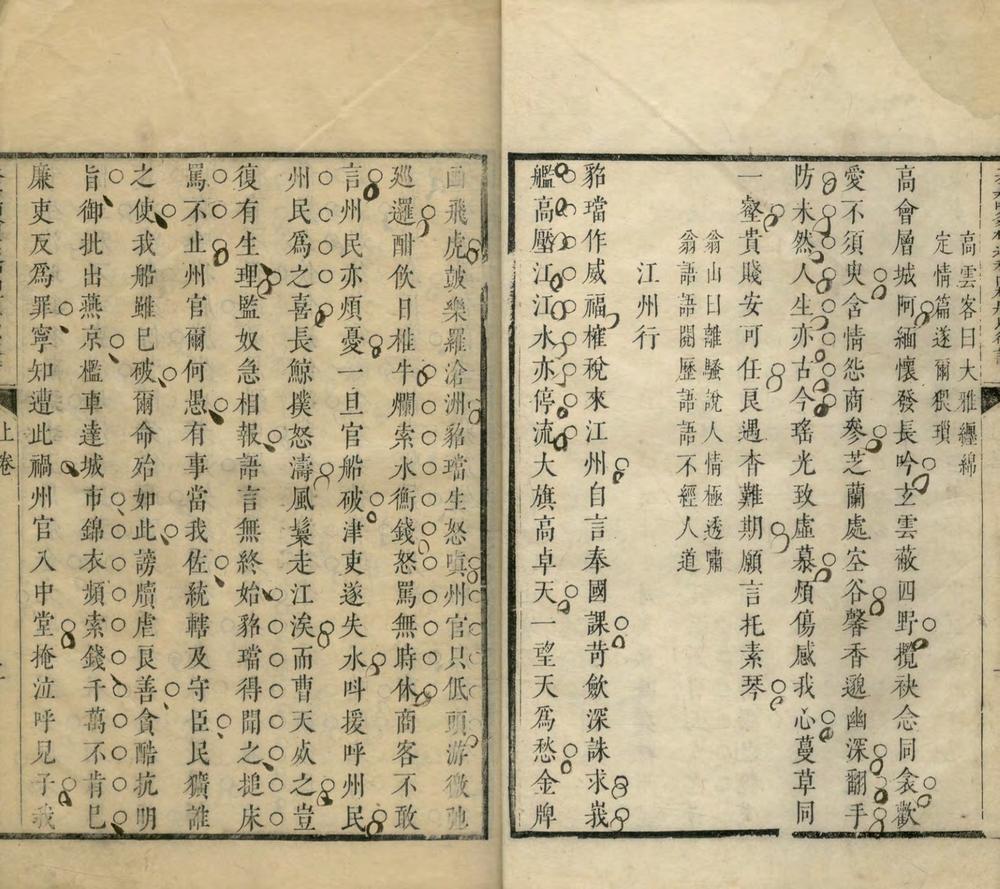 高雲客曰大雅纏綿
定情篇遂爾猥瑣
高會層城阿緬懷發長吟玄雲蔽四野攬袂念同衾歡
愛不須臾含情怨商參芝蘭處空谷馨香邈幽深翻手
防未然人生亦古今瑤光致虛慕煩傷感我心蔓草同
一壑貴賤安可任良遇杳難期願言托素琴
翁山曰離騷說人情極透嘯
翁語語閱歷語語不經人道
江州行
貂璫作威福榷稅來江州自言奉國課苛歛深誅求峩
艦高壓江江水亦停流大旗高卓天一望天爲愁金牌
畫飛虎皷樂羅滄洲貂璫生怒嗔州官只低頭游徼弛
廵邏酣飲日椎牛爛索水衡錢怒罵無時休商客不敢
言州民亦煩憂一旦官船破津吏遂失水呌援呼州民
州民爲之喜長鯨撲怒濤風鬟走江涘而曹天厭之豈
復有生理監奴急相報語言無終始貂璫得聞之搥床
罵不止州官爾何愚有事當我佐統轄及守臣民獷誰
之使我船雖已破爾命殆如此謗牘虐良善貪酷抗明
旨御批出燕京檻車達城市錦衣頻索錢千萬不肯已
廉吏反爲罪寧知遭此禍州官入中堂掩泣呼兒子我
上卷